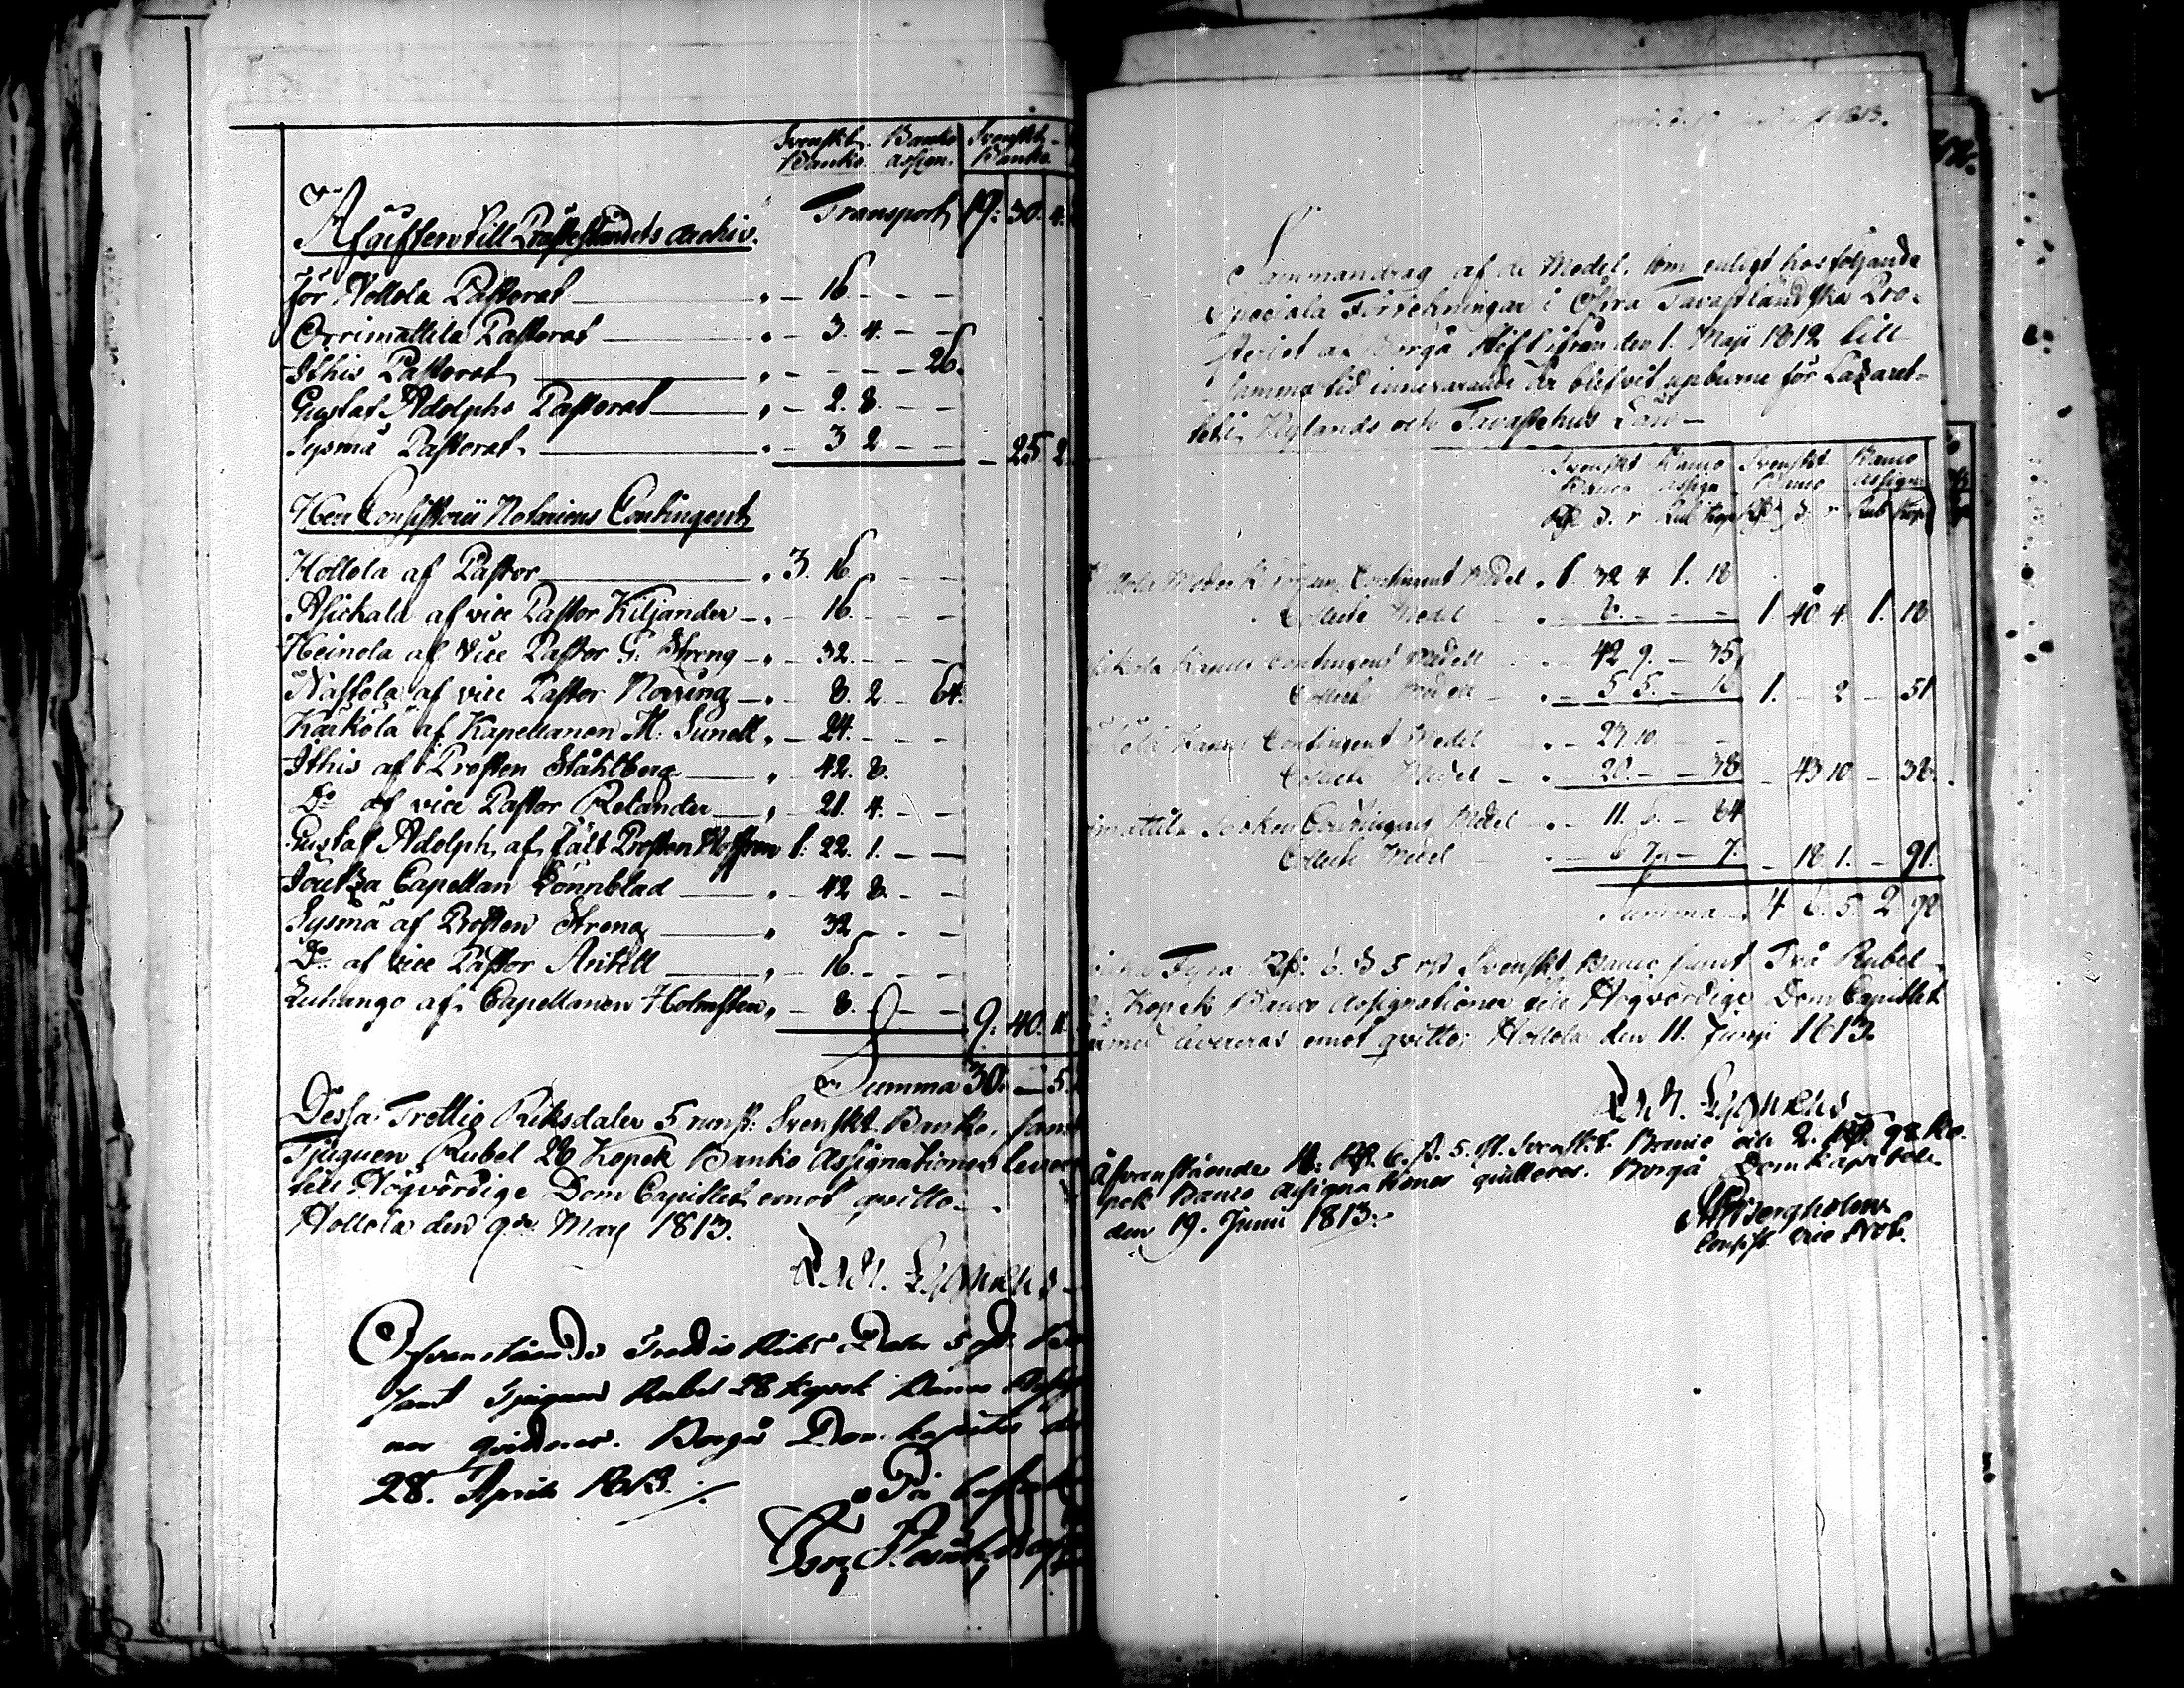 Svenskt Banko Svenskt
Banko. assign. Banko
Transport 19: 30. 4.
Afgiften till Prästeståndets archiv.
för Hollola Pastorat „ – 16. – – –
Orrimattila Pastorat „ – 3. 4. – –
Ithis Pastorat „ – – – – 26.
Gustaf Adolphs Pastorat „ – 2. 8. – –
Sysmä Pastorat. „ – 3 2 – – – 25. 2
Herr Consistorii Notariens Contingent
Hollola af Pastor „ 3. 16. – –
Asickala af vice Pastor Kiljander – „ – 16. – – –
Heinola af Vice Pastor G. Streng – „ – 32. – – –
Nastola af vice Pastor Norring – „ – 8. 2. – 64.
Kärkölä af Kapellanen M. Sunell „ – 24. – – –
Ithis af Prosten Ståhlberg „ 42. 8.
Do af vice Pastor Relander „ – 21. 4. – –
Gustaf Adolph af fält Prosten Hoffren 1: 22. 1. – –
Joutza Capellan Lönnblad „ – 42 8. – –
Sysmä af Prosten Streng „ 32 – – –
Do af vice Pastor Antell „ – 16. – – –
Luhango af Capellanen Holmsten „ – 8. – – – 9. 40. 11.
Summa 30. – 5.
Dessa Trettio Riksdaler 5 runst: Svenskt Banko, samt
Tjuguen Rubel 28 Kopek Banko Assignationer
till Högvördige Dom Capitlet emot qvitto.
Hollola den 9de Marj 1813.
Ofvanstående Trettio Riks Daler 5
samt Tjuguen Rubel 28 Kopek Banco
ner qvitteras. Borgå Dom Capitel
28. April 1813.
1813.
Sammandrag af de Medel, som enligt hosföljande
Speciala Förtekningar i Öfra Tavastländska Pro-
steriet af Borgå Stift ifrån den 1. Maji 1812 till
samma tid innevarande år blifvit upburne för Lazaret-
tet i Nylands och Tavastehus Län –
Svenskt Banco Svenskt Banco
Banco assign. Banco assign
Rub Kop Rub Kop
Moder Contingent Medel „ 1. 32 4 1. 18
Collect Medel „ – 8. – – – 1 40 4. 1. 18
Kapell Contingent Medel – 42 9. – 35
Collect Medel „ – 5 5. – 16 1. – 2 – 51
Kapell Contingent Medel „ – 23. 10. – –
Collect Medel „ – 20. – – 38 – 43 10 – 38.
Socken Contingent Medel „ – 11. 6. – 84
Collect Medel „ – 6 7. – 7. – 18 1. – 91.
Summa 4 6. 5. 2 98
Fyra 6. ß 5 rst Svenskt Banco samt Två Rubel
Kopek Banco Assignationer till Högvördige Dom Capitlet
levereras emot qvitto; Hollola den 11. Junji 1813.
Ofvanstående 4: 6. ß. 5. st. Svenskt Banco och 2. 98 Ko-
pek Banco Assignationer quitteras. Borgå Domkapitel
den 19. Junii 1813.
Bergholm
Consist. vice Not.